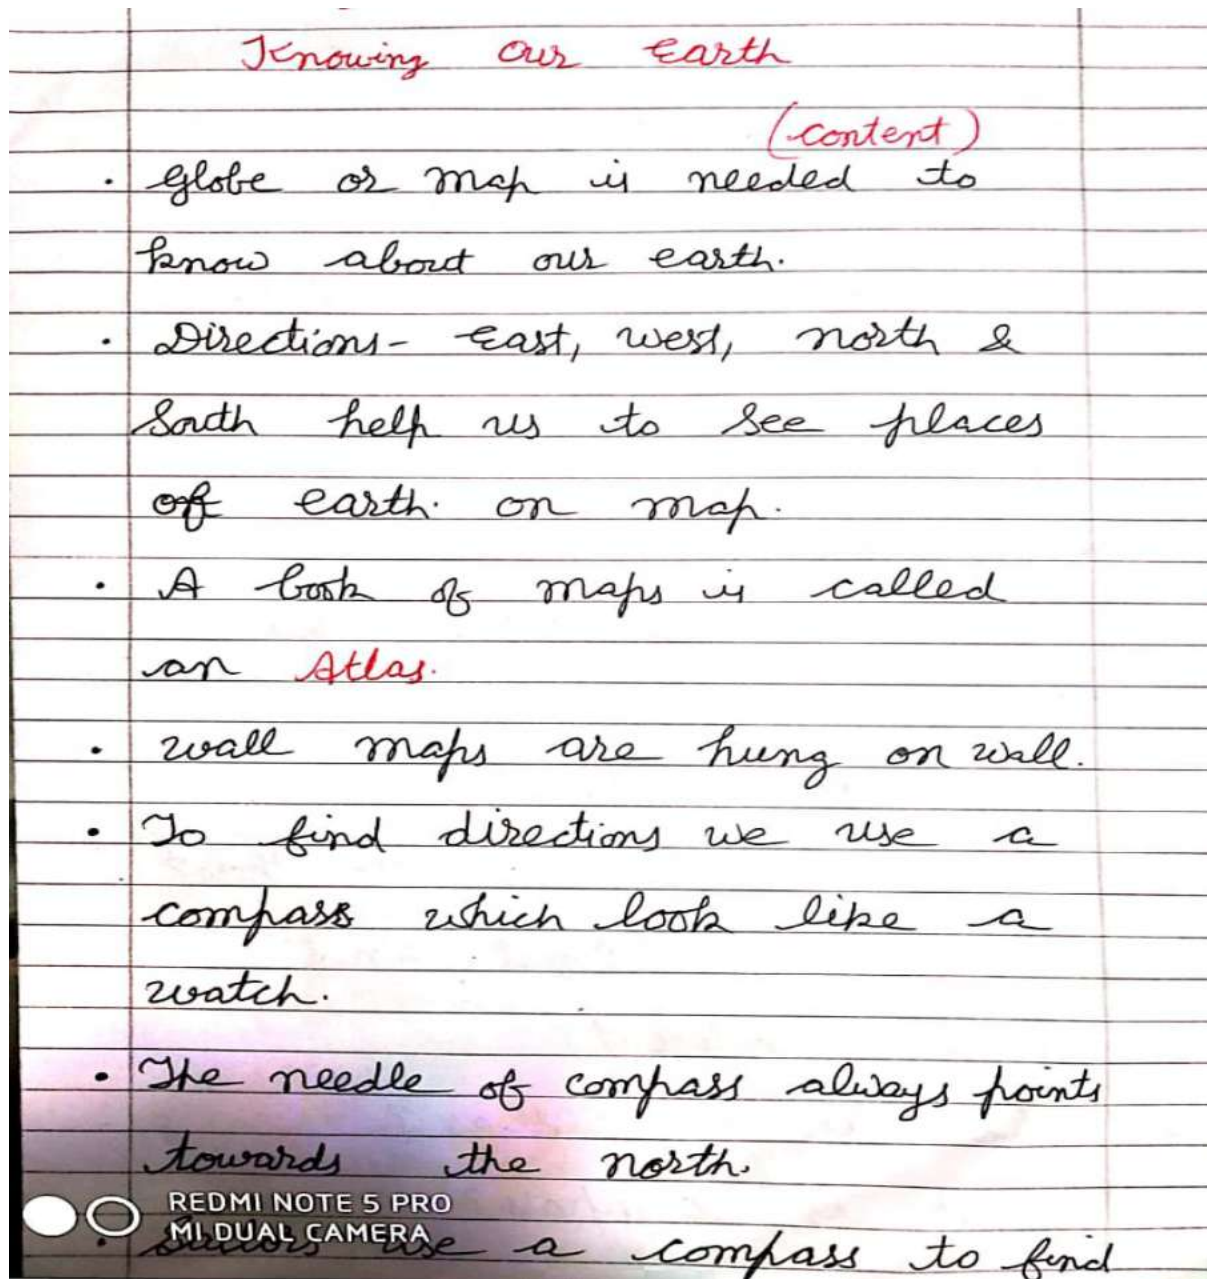 Knowing our Earth
(content)
• Globe or map is needed to
know about our earth.
• Directions- East, west, north &
South help us to see places
of earth. on map.
• A book of maps is called
an Atlas.
• wall maps are hung on wall.
• To find directions we use a
compass which look like a
watch.
• The needle of compass always points
towards the north.
REDMI NOTE 5 PRO
MI DUAL CAMERA
• Sailors use a compass to find